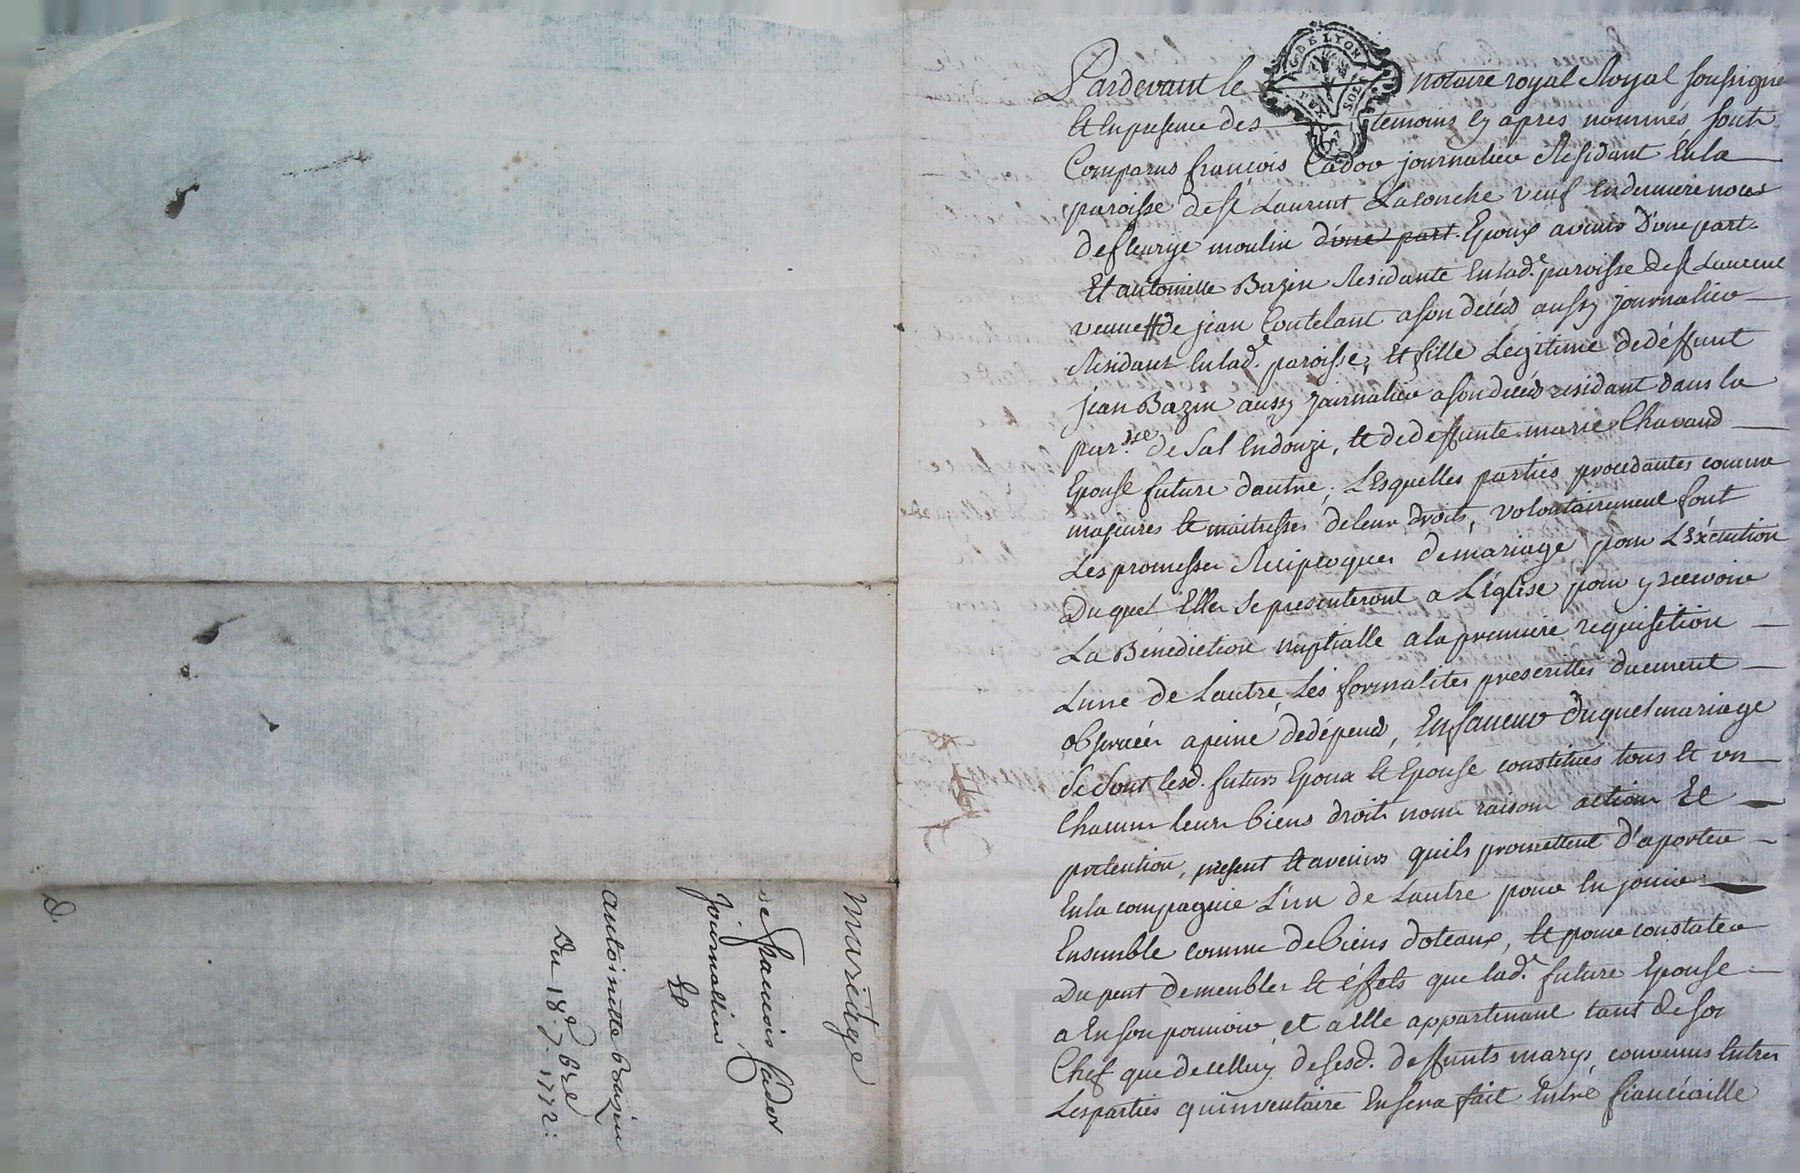 Pardevant le notaire royal Royal soussigné
Et en presence des temoins cy apres nommés sont
Comparus françois Cadov journalier Residant En la
paroisse de St Laurent Laconche veuf En derniere noces
de fleurye moulin d'une part. Epoux avenir D'une part.
Et antoinette Bazin Residante En lade. paroisse de St Laurent
veuve de jean Coutelant a son décéd aussy journalier
Residant En lade. paroisse, Et fille Légitime de déffunt
jean Bazin aussy journalier a son décéd residant dans la
parsse. de Sal Endouzi, Et de deffunte marie Chavand
Epouse future d'autre ; Lesquelles parties procedantes comme
majeures Et maitresses de leur droits, volontairement font
Les promesses Reciproques de mariage pour L'Exécution
Duquel Elles Se presenteront a L'église pour y recevoir
La Bénédiction nuptialle a la premiere requisition
L'une de L'autre, Les formalites prescrittes duement
observées a peine de dépend, En faveur duquel mariage
Se Sont lesd. futurs Epoux Et Epouse constitués tous Et un
Chacun leurs biens droits noms raisons actions Et
prétention, présent Et avenirs qu'ils promettent d'aporter
En la compagnie L'un de Lautre pour En jouir
Ensemble comme de biens doteaux, Et pour constater
Du peut de meubles Et Effets que lade. future Epouse
a En son pouvoir Et a Elle appartenant tant de son
Chef que de celluy de sesd. deffunts marys, convenus Entre
Les parties qu'inventaire En sera fait Entre fiancéaille
mariage
de françois Cadov
journallier
Et
antoinette bouzin
Du 18e 7bre 1772.
D.
G. DE LYON
SOLS